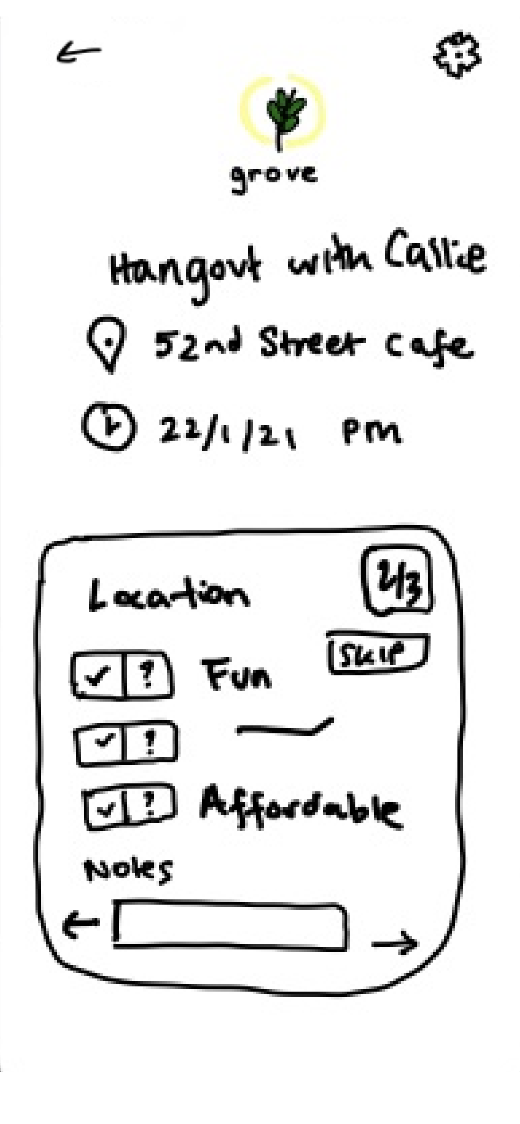 grove
Hangout with Callie
52nd Street Cafe
22/1/21 PM
Location 2/3
SKIP
✓ ? Fun
✓ ?
✓ ? Affordable
Notes